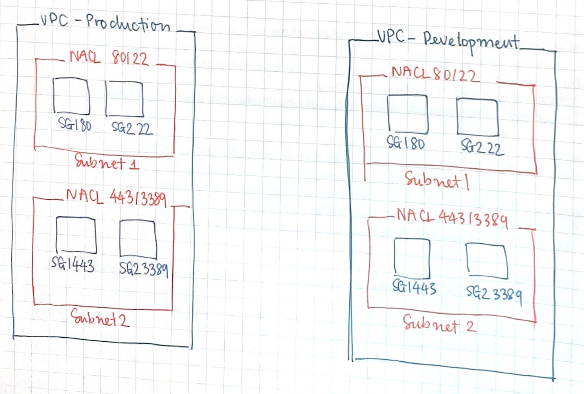 VPC-Production
NACL 80/22
SG1 80 SG2 22
Subnet 1
NACL 443/3389
SG1 443 SG2 3389
Subnet 2
VPC-Development
NACL 80/22
SG1 80 SG2 22
Subnet 1
NACL 443/3389
SG1 443 SG2 3389
Subnet 2